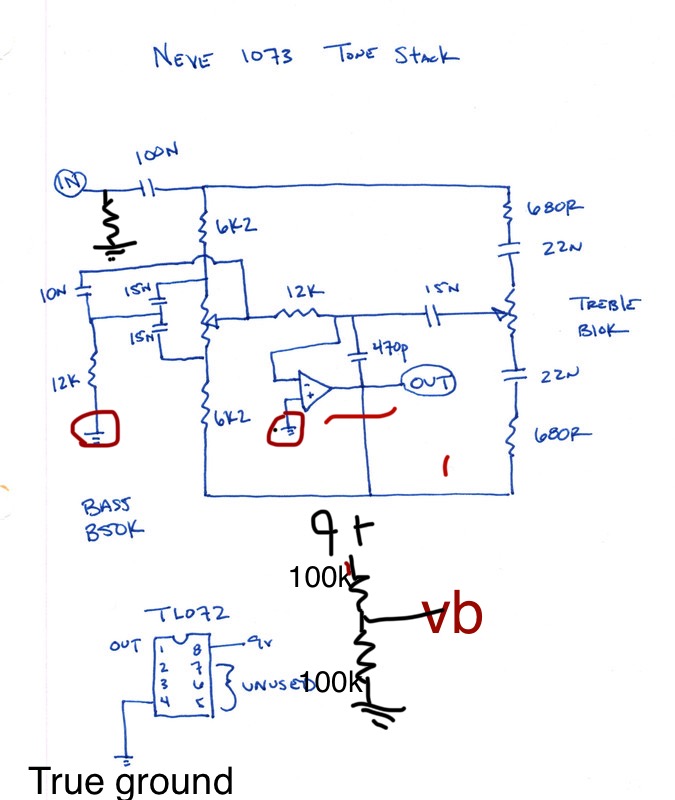 NEVE 1073 TONE STACK
100N
IN
6K2
680R
22N
10N
15N
12K
15N
TREBLE
B10K
15N
470p
12K
- +
OUT
22N
6K2
680R
BASS
B50K
9+
100k
vb
TL072
OUT 1 8 9v
2 7
3 6 UNUSED
100k
4 5
True ground